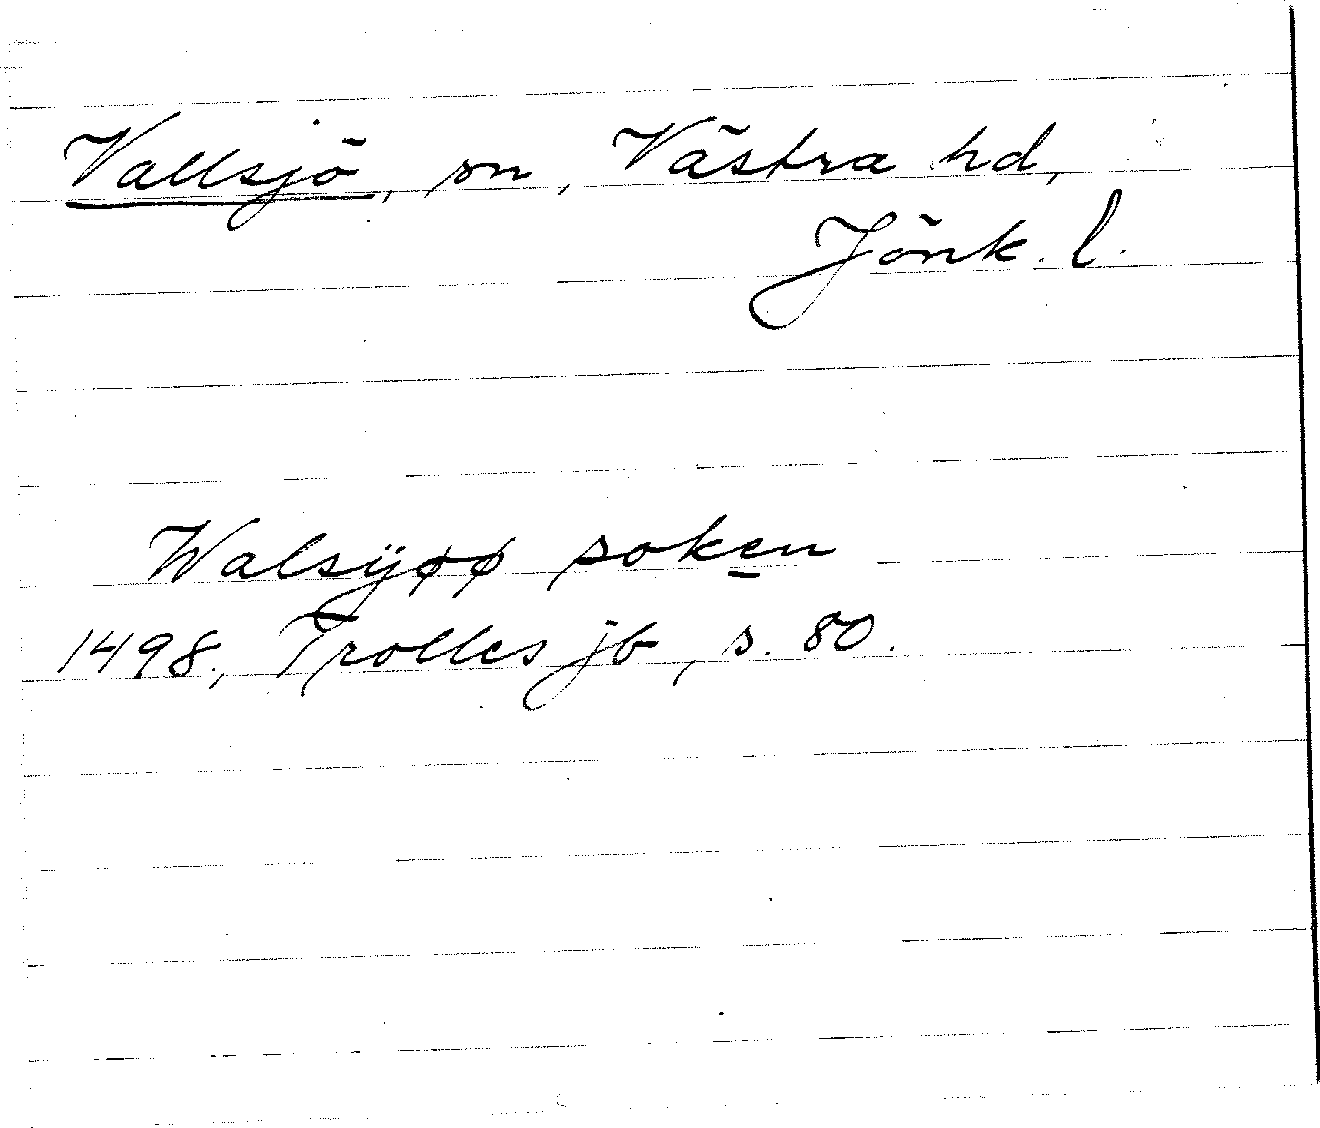 Vallsjö, sn, Västra hd,
Jönk. l.
Walsÿøø soken
1498, Trolles jb, s. 80.